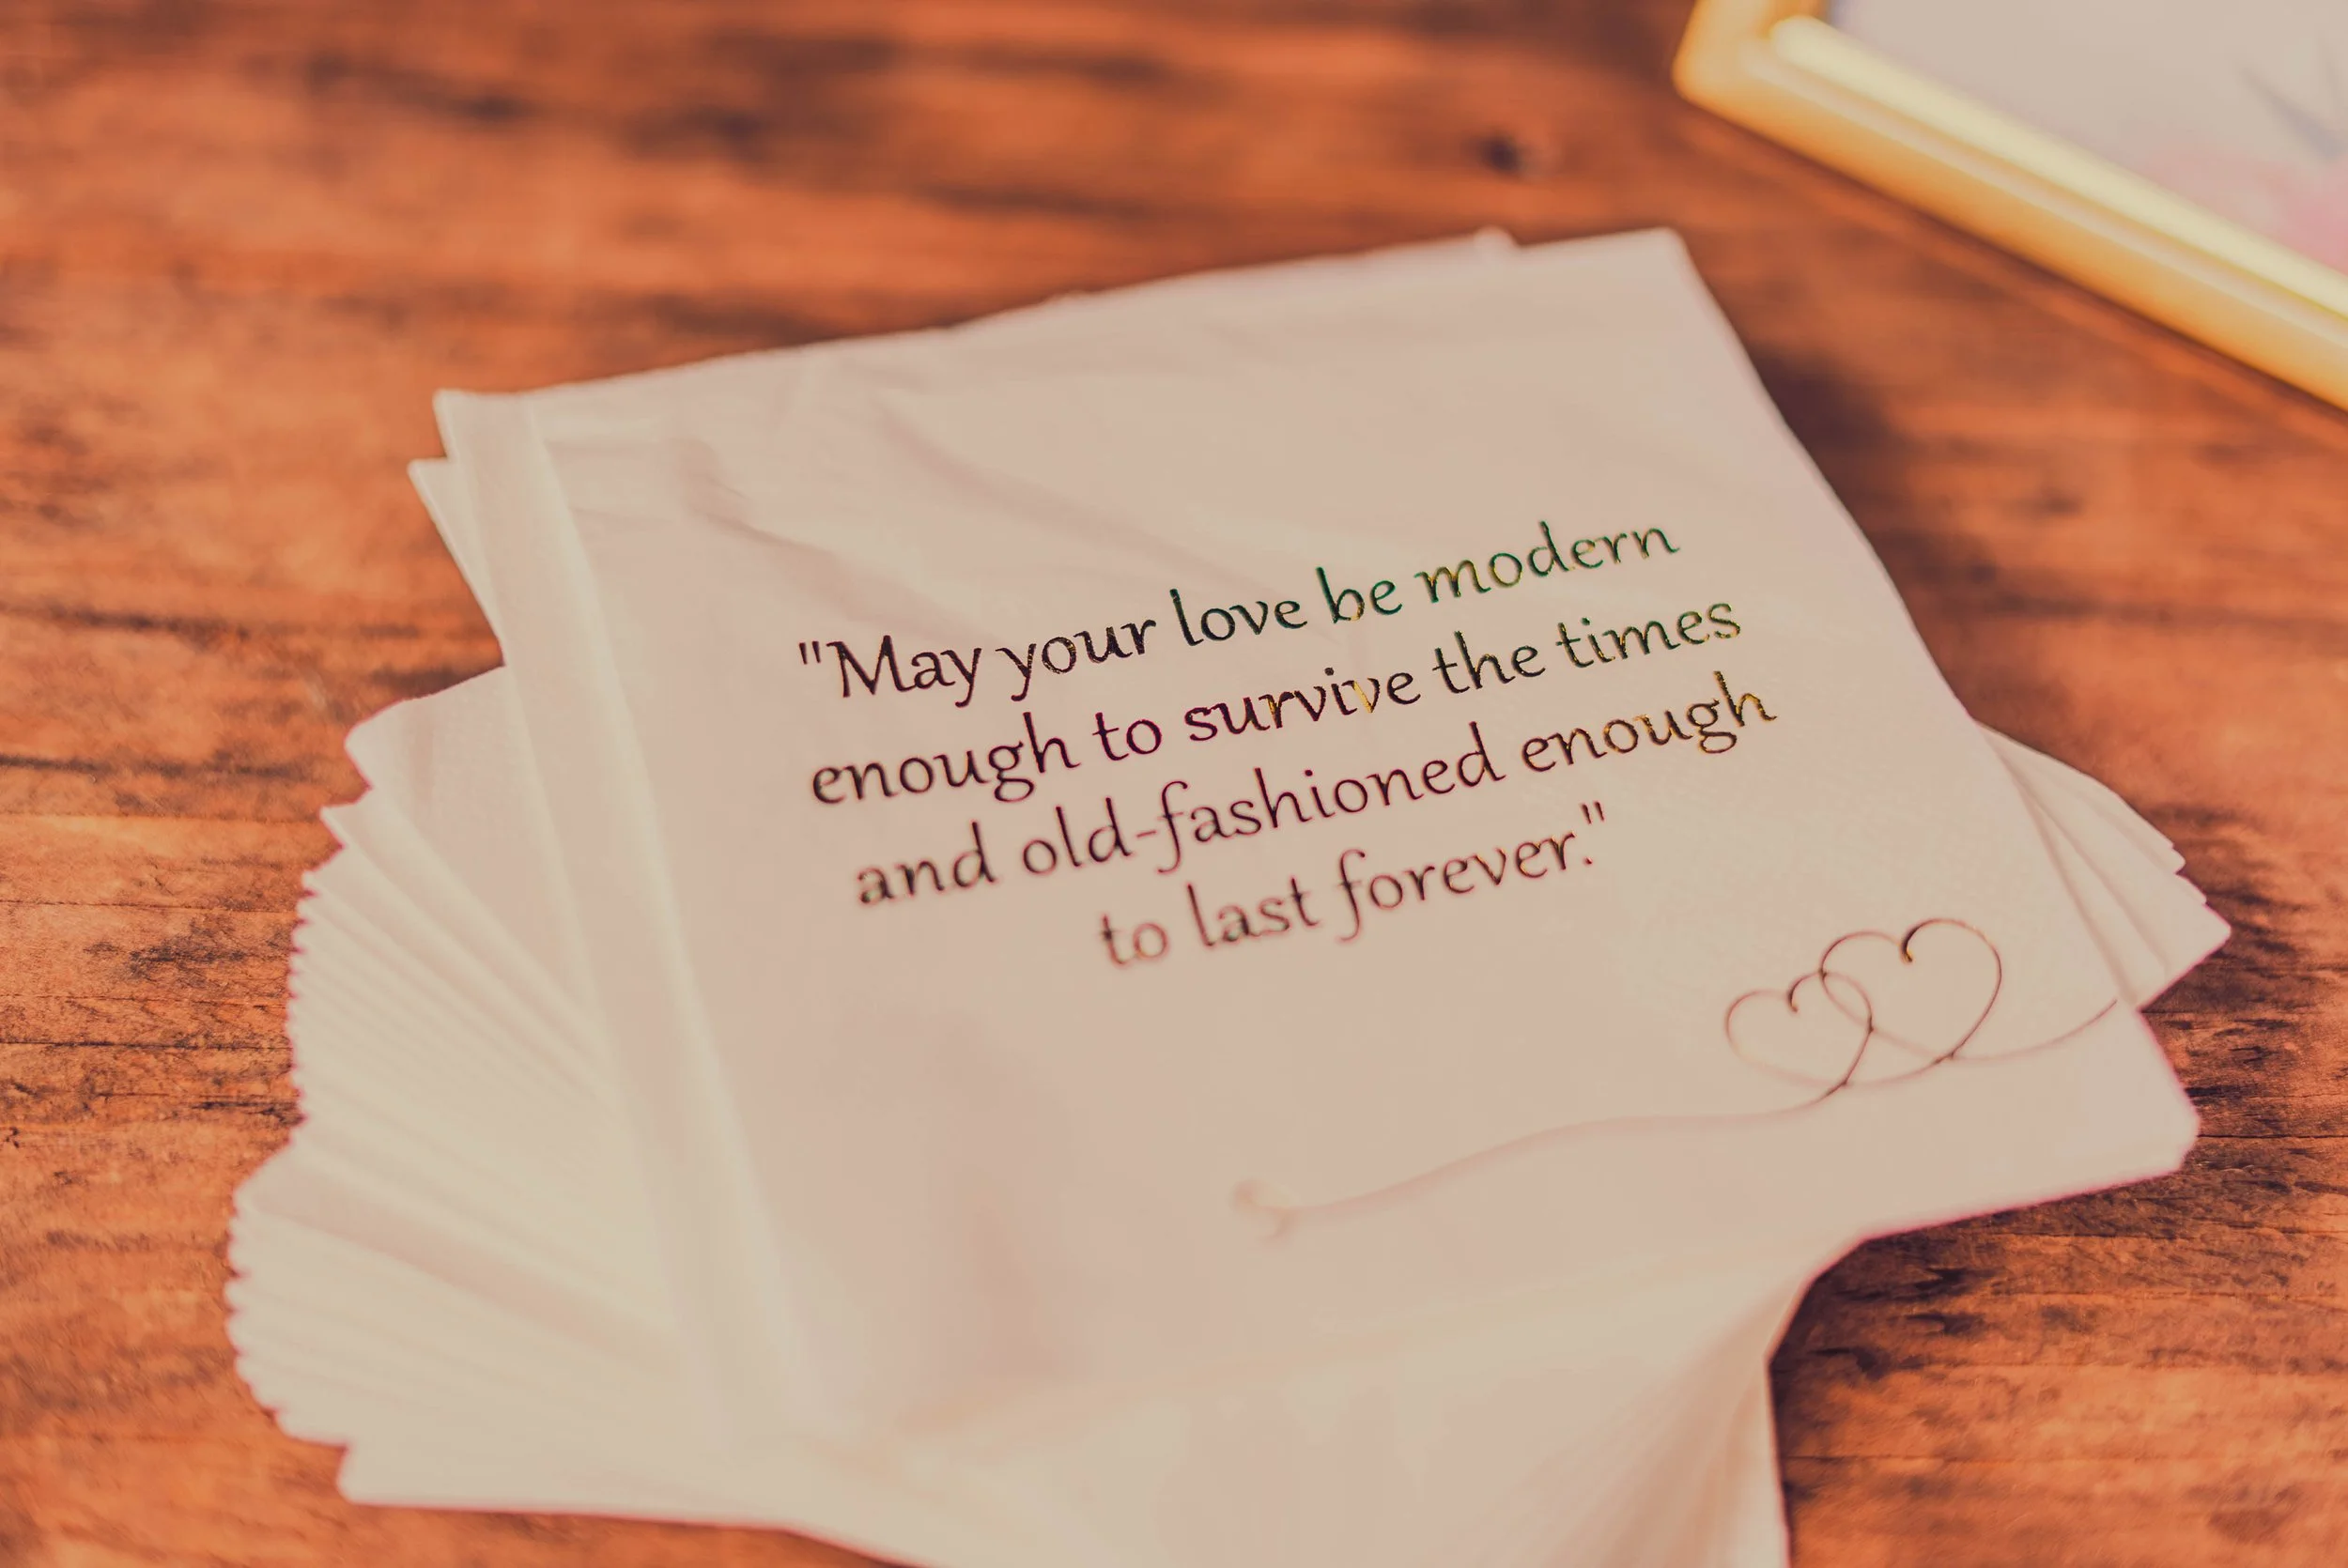 "May your love be modern
enough to survive the times
and old-fashioned enough
to last forever."